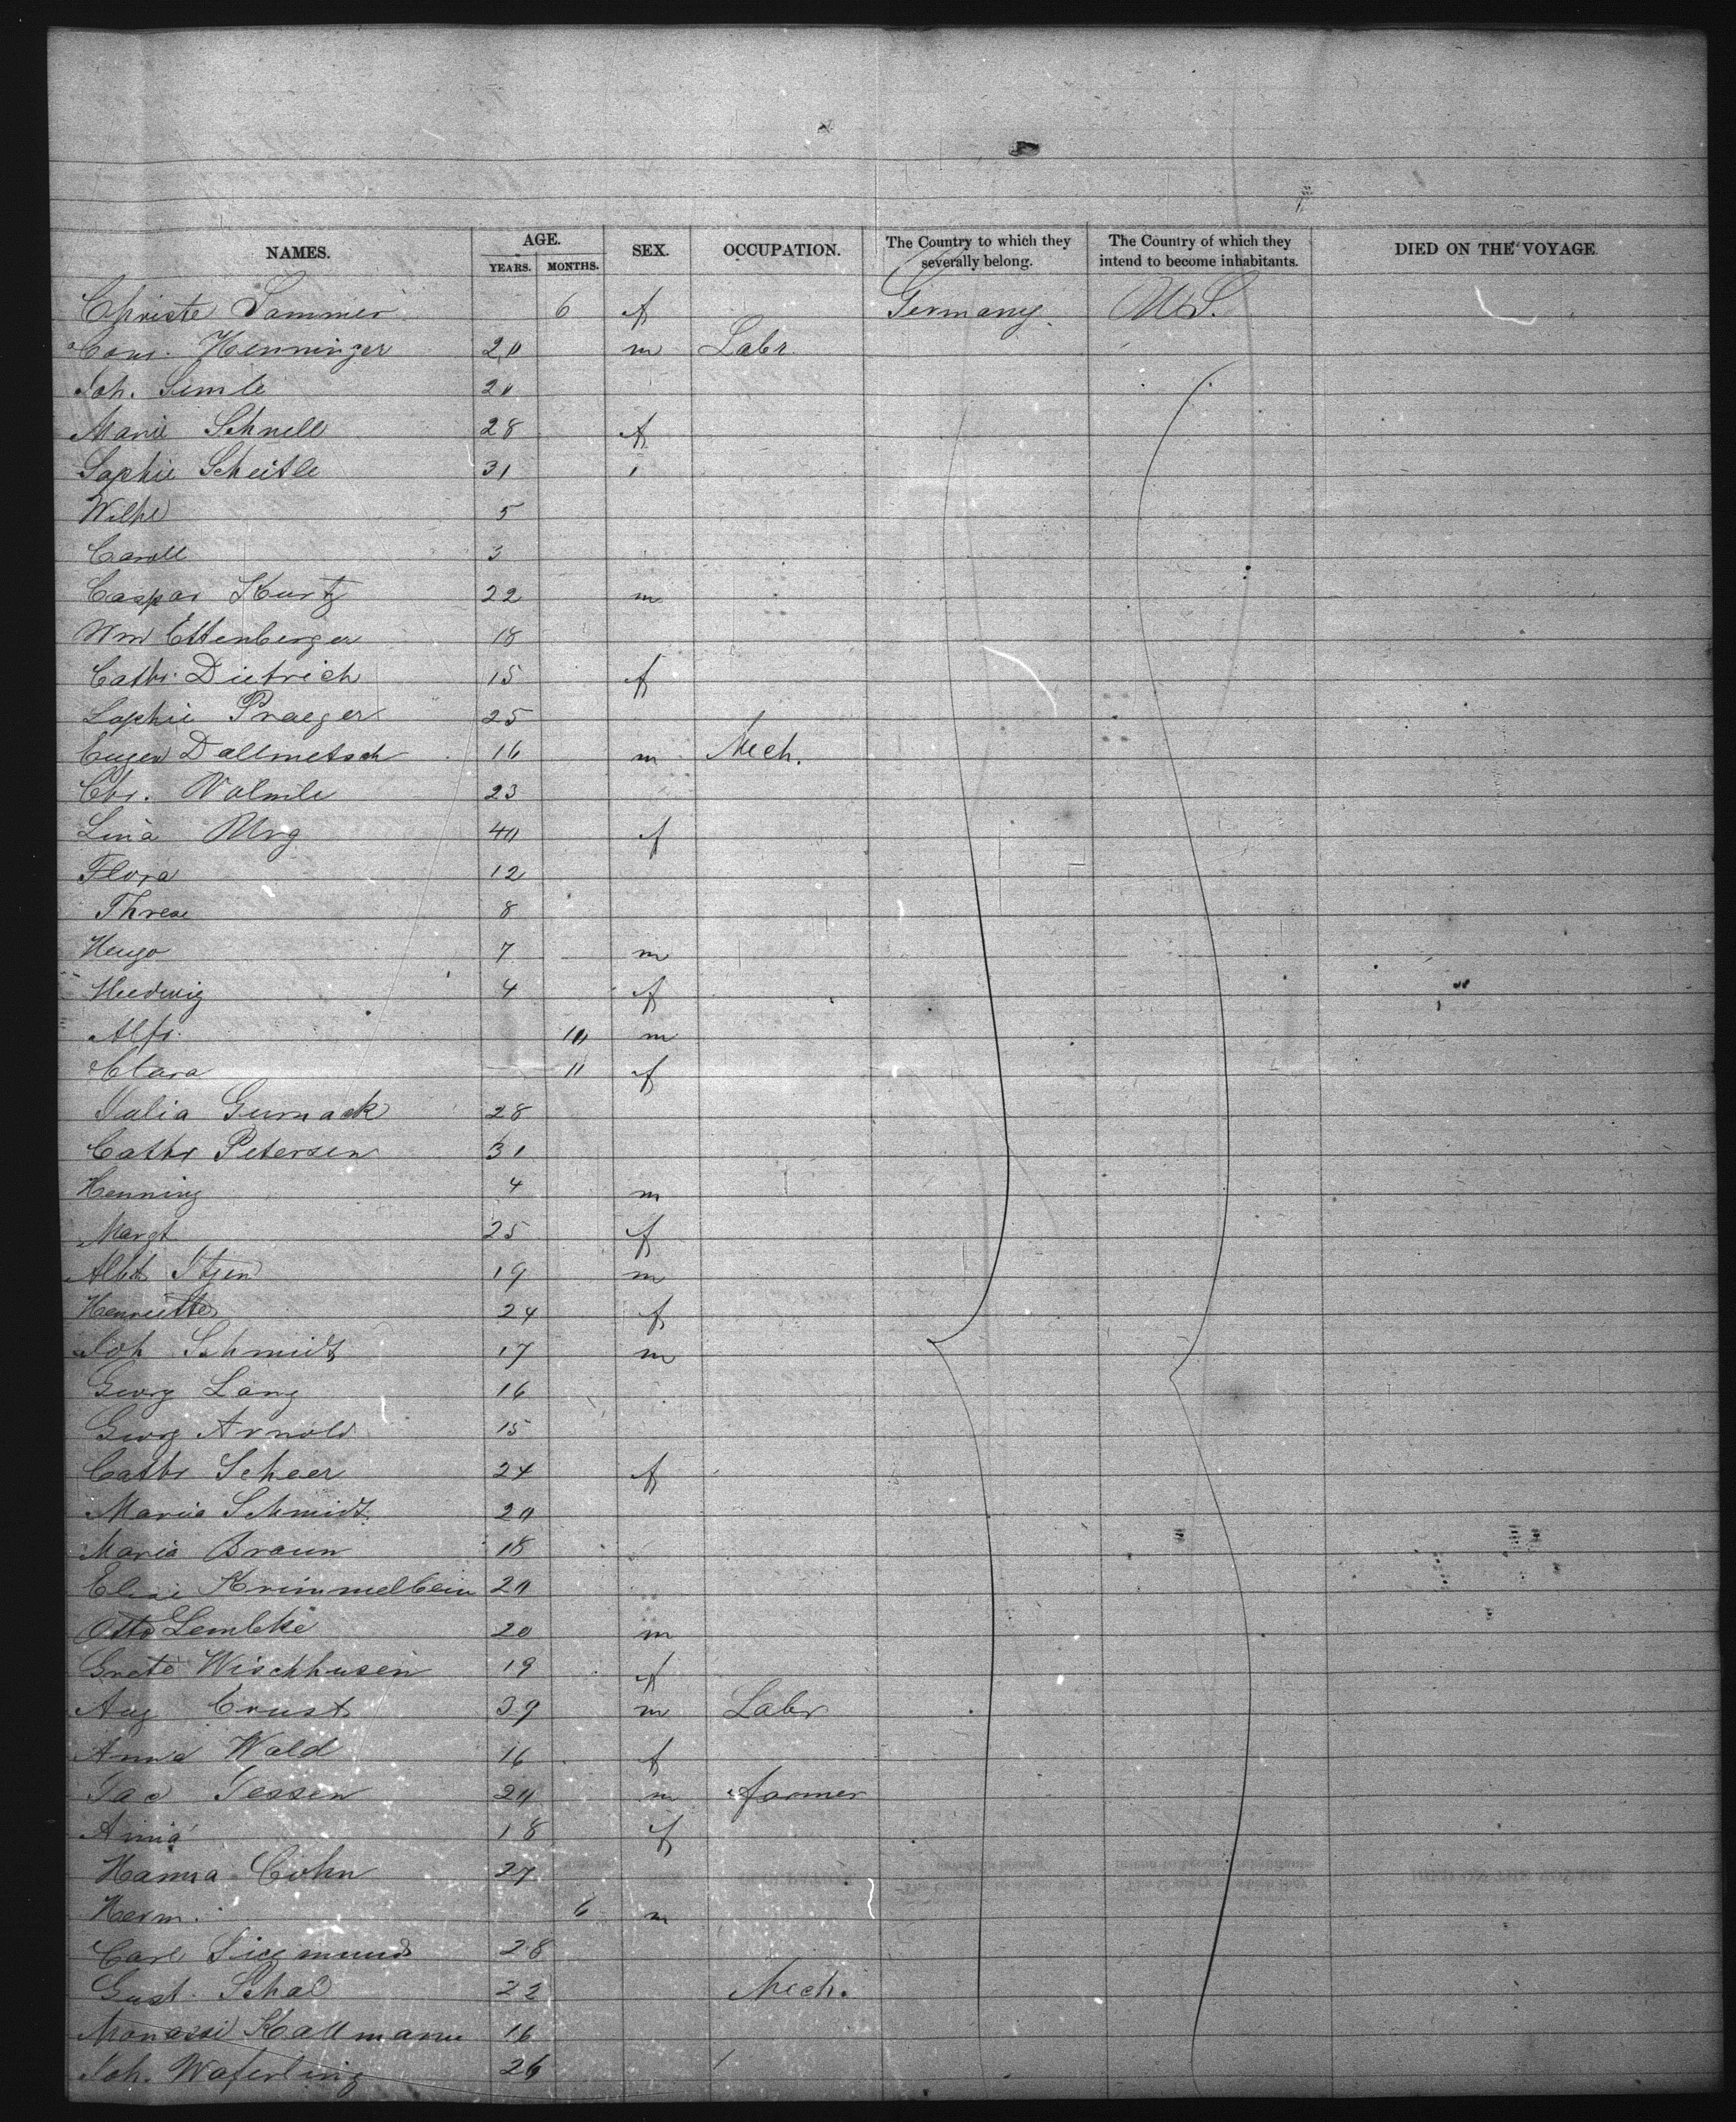 NAMES. AGE. YEARS. MONTHS. SEX. OCCUPATION. The Country to which they severally belong. The Country of which they intend to become inhabitants. DIED ON THE VOYAGE
Christe Sammer 6 f Germany U.S.
Conr. Henninger 20 m Labr
Joh. Simle 20
Marie Schnell 28 f
Sophie Scheitle 31
Wilh 5
Caroll 3
Caspar Kurtz 22 m
Wm Ettenberger 18
Cathr. Dietrich 15 f
Sophie Praeger 25
Eugen Dallmetsch 16 m Mech.
Chr. 23
Lina 40 f
Flora 12
Threse 8
Hugo 7 m
Hedwig 4 f
Alfr. 10 m
Clara 11 f
Julia Gumack 28
Cathr Petersen 31
Henning 4 m
Margt 25 f
Albt Itjen 19 m
Henriette 24 f
Joh Schmidt 17 m
Georg Lang 16
Georg Arnold 15
Cathr Scheer 24 f
Maria Schmidt 20
Maria Braun 18
Elise Krimmelbein 20
Otto Lembke 20 m
Grete Wischhusen 19 f
Aug Crust 39 m Labr
Anna Wald 16 f
Jac Jessen 24 m farmer
Anna 18 f
Hanna Cohn 27
Herm. 6 m
Carl Sigmund 28
Gust. Schal 22 Mech.
Monassi Kallmann 16
Joh. Waferling 26